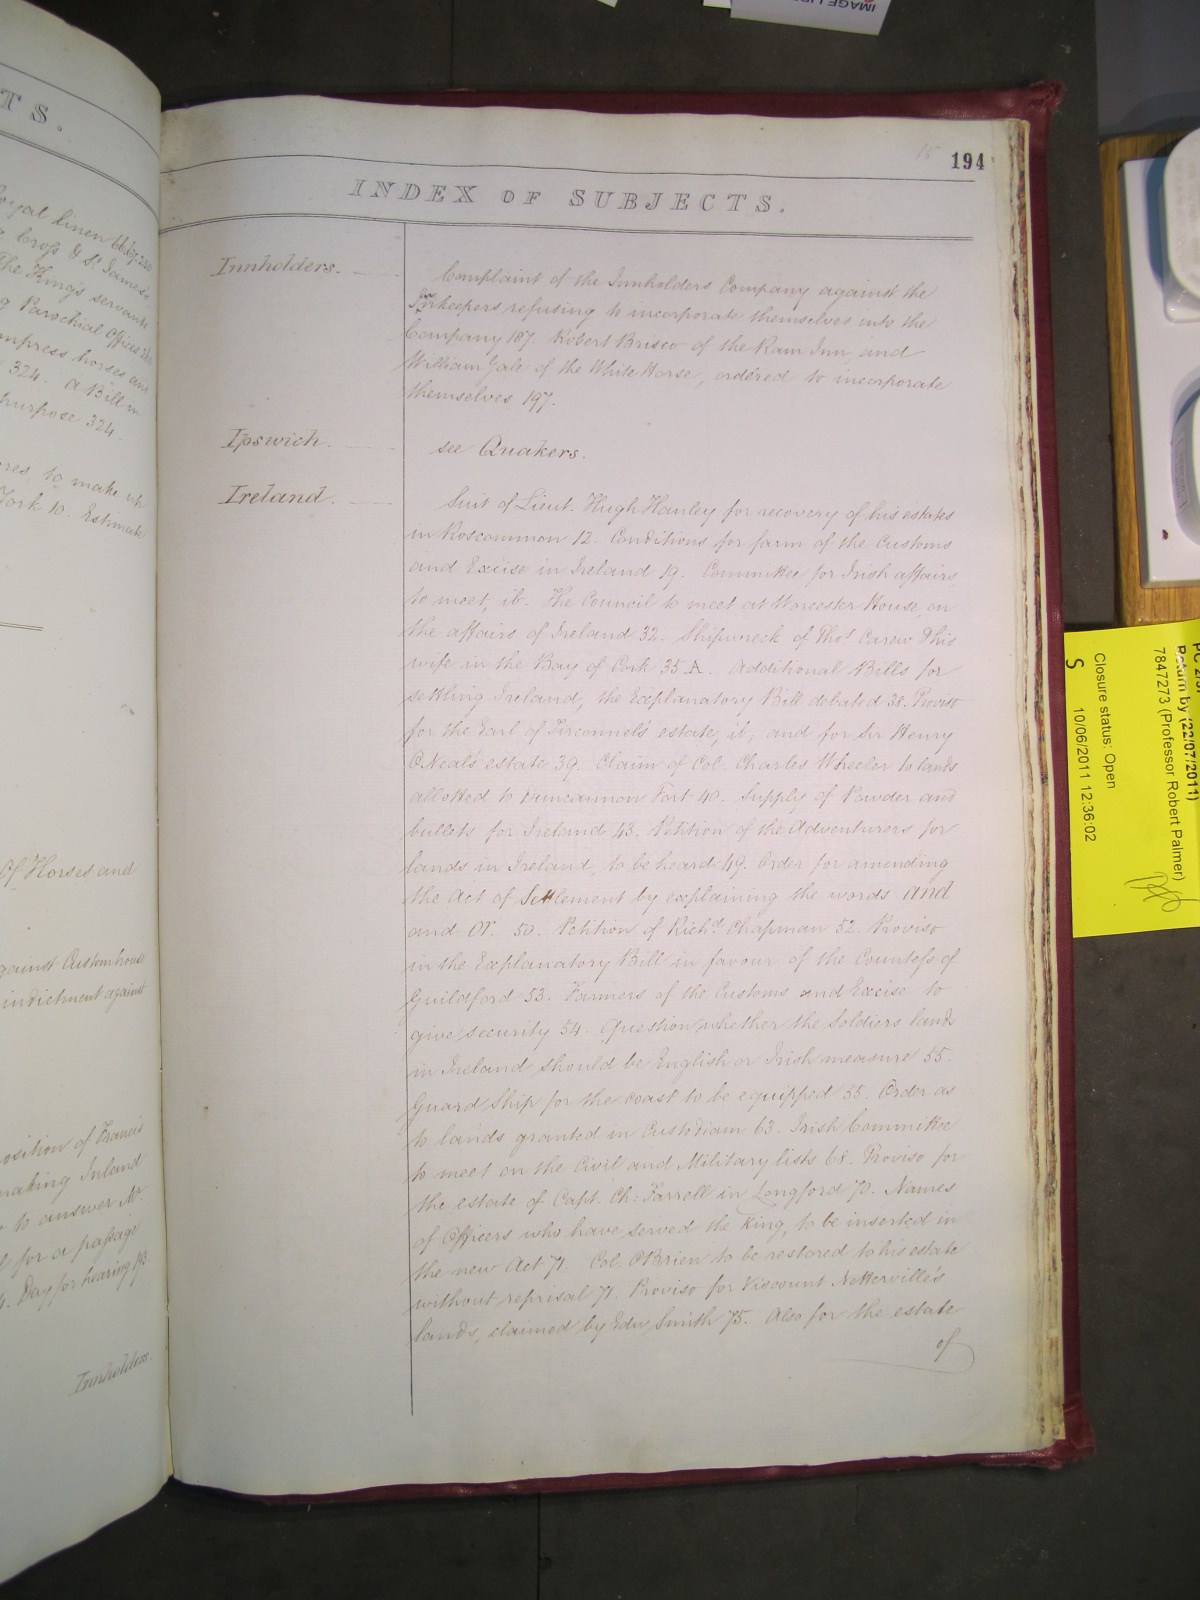 TS.
Royal linen
The King's servants
Parochial Offices
impress horses and
324. a Bill in
purpose 324.
to make
York 10. Estimate
Of Horses and
against Customhouse
indictment against
Francis
making Inland
to answer
for a passage
Day for hearing
Innholders.
194
INDEX OF SUBJECTS.
Innholders.
Complaint of the Innholders Company against the
Innkeepers refusing to incorporate themselves into the
Company 187. Robert Brisco of the Ram Inn, and
William Gale of the White Horse, ordered to incorporate
themselves 197.
Ipswich.
see Quakers.
Ireland.
Suit of Lieut. Hugh Hanley for recovery of his estates
in Roscommon 12. Conditions for farm of the Customs
and Excise in Ireland 19. Committee for Irish affairs
to meet, ib. The Council to meet at Worcester House, on
the affairs of Ireland 32. Shipwreck of Thos. Carew & his
wife in the Bay of Cork 35 A. Additional Bills for
settling Ireland, the Explanatory Bill debated 38. Proviso
for the Earl of Tirconnel's estate, ib; and for Sir Henry
O'Neal's estate 39. Claim of Col. Charles Wheeler to lands
allotted to Duncannon Fort 40. Supply of Powder and
bullets for Ireland 43. Petition of the Adventurers for
lands in Ireland, to be heard 49. Order for amending
the Act of Settlement by explaining the words and
and or. 50. Petition of Richd. Chapman 52. Proviso
in the Explanatory Bill in favour of the Countess of
Guildford 53. Farmers of the Customs and Excise to
give security 54. Question whether the Soldiers lands
in Ireland should be English or Irish measure 55.
Guard Ship for the coast to be equipped 55. Order as
to lands granted in Custodiam 63. Irish Committee
to meet on the Civil and Military lists 68. Proviso for
the estate of Capt. Ch: Farrell in Longford 70. Names
of Officers who have served the King, to be inserted in
the new Act 71. Col. O'Brien to be restored to his estate
without reprisal 71. Proviso for Viscount Netterville's
lands, claimed by Edw. Smith 75. Also for the estate
of
Return by (22/07/2011)
7847273 (Professor Robert Palmer)
Closure status: Open
S 10/06/2011 12:36:02